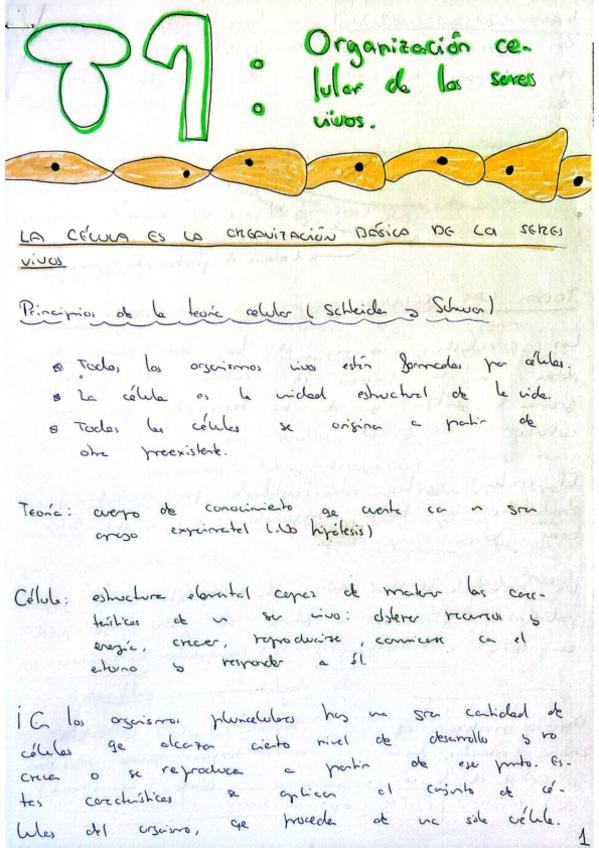 T1: Organización ce-
lular de los seres
vivos.
LA CÉLULA ES LA ORGANIZACIÓN BÁSICA DE LA SERES
VIVOS
Principios de la teoría celular ( Schleiden y Schwan)
Todos los organismos vivos están formados por células.
La célula es la unidad estructural de la vida.
Todas las células se origina a partir de
otra preexistente.
Teoría: cuerpo de conocimiento qe cuenta con un gran
apoyo experimental (No hipótesis)
Célula: estructura elemental capaz de mantener las carac-
terísticas de un ser vivo: obtener recursos y
energía, crecer, reproducirse, comunicarse con el
entorno y responder a él.
¡En los organismos pluricelulares hay una gran cantidad de
células qe alcanzan cierto nivel de desarrollo y no
crecen o se reproducen a partir de ese punto. Es-
tas características se aplican al conjunto de cé-
lulas del organismo, qe proceden de una sola célula.
1